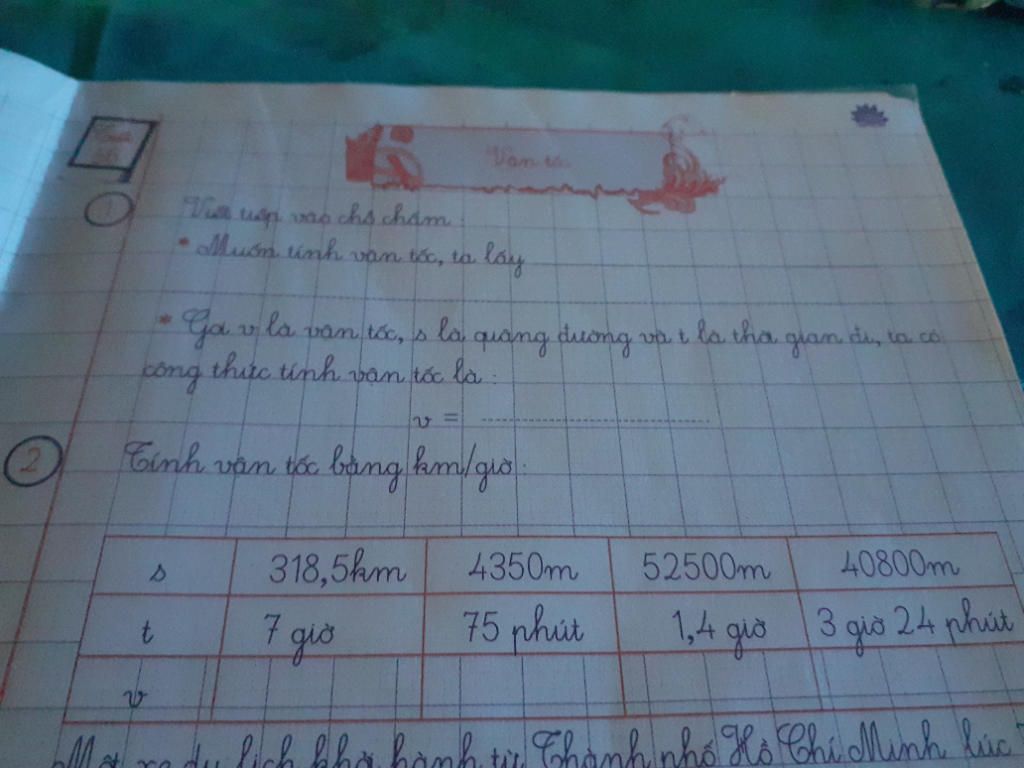 Vận tốc
1
Viết tiếp vào chỗ chấm:
* Muốn tính vận tốc, ta lấy
* Gọi v là vận tốc, s là quãng đường và t là thời gian đi, ta có
công thức tính vận tốc là:
v = ........................
2 Tính vận tốc bằng km/giờ:
s 318,5km 4350m 52500m 40800m
t 7 giờ 75 phút 1,4 giờ 3 giờ 24 phút
v
Một xe du lịch khởi hành từ Thành phố Hồ Chí Minh lúc